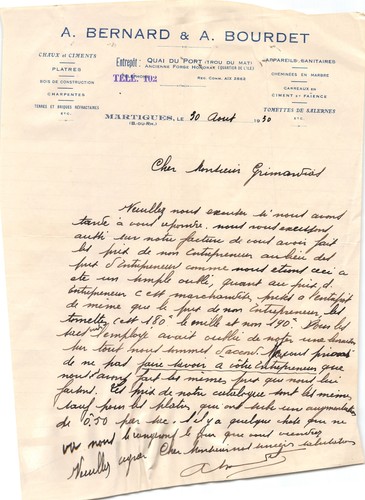 A. BERNARD & A. BOURDET
CHAUX et CIMENTS
PLATRES
BOIS DE CONSTRUCTION
CHARPENTES
TERRES ET BRIQUES RÉFRACTAIRES
ETC.
Entrepôt: QUAI DU PORT (TROU DU MAT)
ANCIENNE FORGE
QUARTIER DE L'ILE
TÉLÉ. 102
REG. COMM. AIX 2963
APPAREILS SANITAIRES
CHEMINÉES EN MARBRE
CARREAUX EN
CIMENT ET FAIENCE
TOMETTES DE SALERNES
ETC.
MARTIGUES, LE 30 Aout 1930
(B.-DU-RH.)
Cher Monsieur
Veuillez nous excuser si nous avons
tardé à vous repondre, nous nous excusons
aussi sur notre facture de vous avoir fait
les prix de non Entrepreneur au lieu des
prix d'Entrepreneur comme nous ceci a
ete un simple oublie, quant au prix d'
Entrepreneur c'est marchandises prises a l'entrepot
de même que le prix de non Entrepreneur, les
tomettes c'est 180 le mille et non 190. Vous les
l'employé avait oublié de noter une
sur tout nous sommes d'accord.
de ne pas faire savoir a votre Entrepreneur que
nous avons fait les mêmes prix que nous lui
faisons. Les prix de notre catalogue sont les mêmes
sauf pour les platres qui ont une augmentation
de 0,50 par sac. S'il y a quelque chose qui ne
va nous le que vous viendrez
Veuillez agreer Cher Monsieur nos salutations